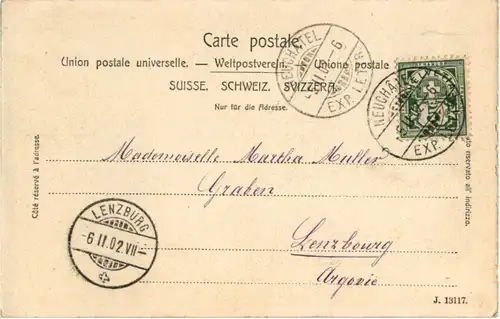 Carte postale.
Union postale universelle. — Weltpostverein. — Unione postale
SUISSE. SCHWEIZ. SVIZZERA.
Nur für die Adresse.
NEUCHÂTEL
EXP. LETTR.
NEUCHÂTEL
EXP. LETTR.
Côté réservé à l'adresse.
riservato all' indirizzo.
Mademoiselle Martha Muller
Graben
Lenzbourg
Argovie
LENZBURG
6 II.02.VII
J. 13117.